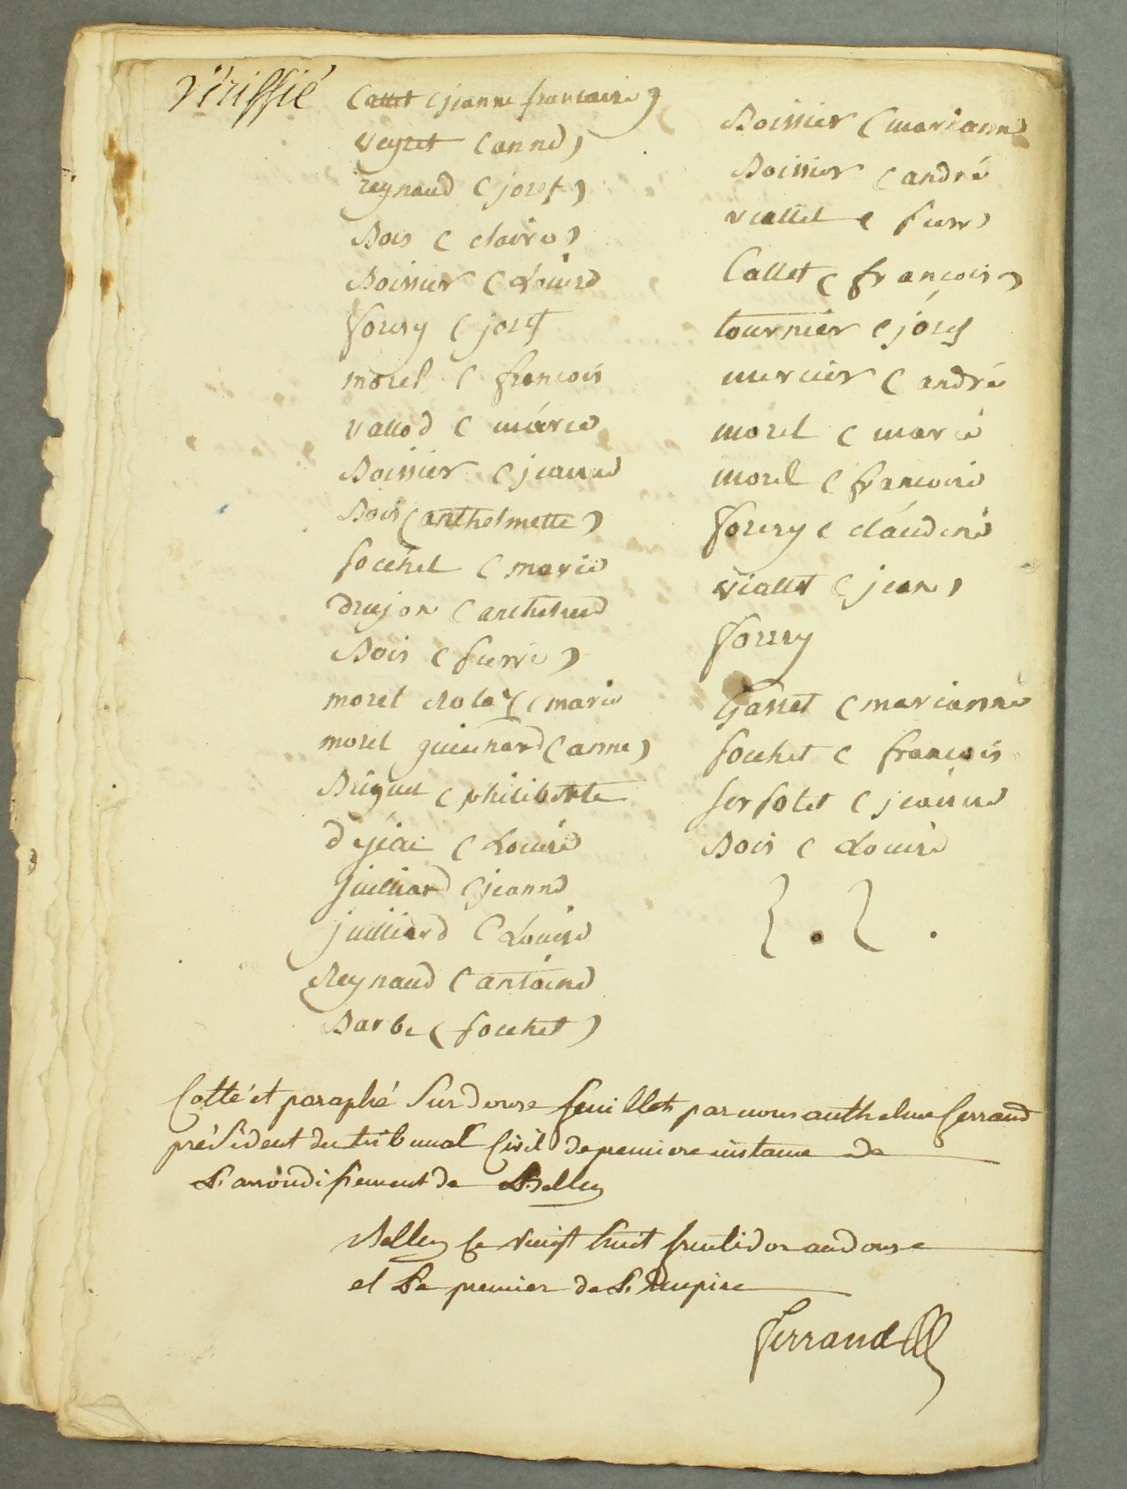 vériffié
Callet (jeanne francoise)
veyret (anne)
reynaud (josef)
Bois (claire)
Boissier (Louise
forey (josef
morel (francois
vallod (marie
Boissier (jeanne
Bois (anthelmette)
fochet (marie
dujon (anthelme
Bois (pierre)
morel (marie
morel guichard (anne)
(philiberte
dejai (Louise
juilliard (jeanne
juilliard (Louise
Reynaud (antoine
Barbe (fochet)
Boissier (marianne
Boissier (andré
viallet (pierre)
Callet (francois)
tournier (josef
mercier (andré
morel (marie
morel (francoise
forey (claudine
viallet (jean)
forey
Gasset (marianne
fochet (francois
(jeanne
Bois (Louise
Cotté et paraphé Sur douse feuillets par nous anthelme ferrand
président du tribunal Civil de premiere instance de
L'arrondissement de Belley
Belley le vingt huit fructidor an douse
et Le premier de L'Empire
ferrand